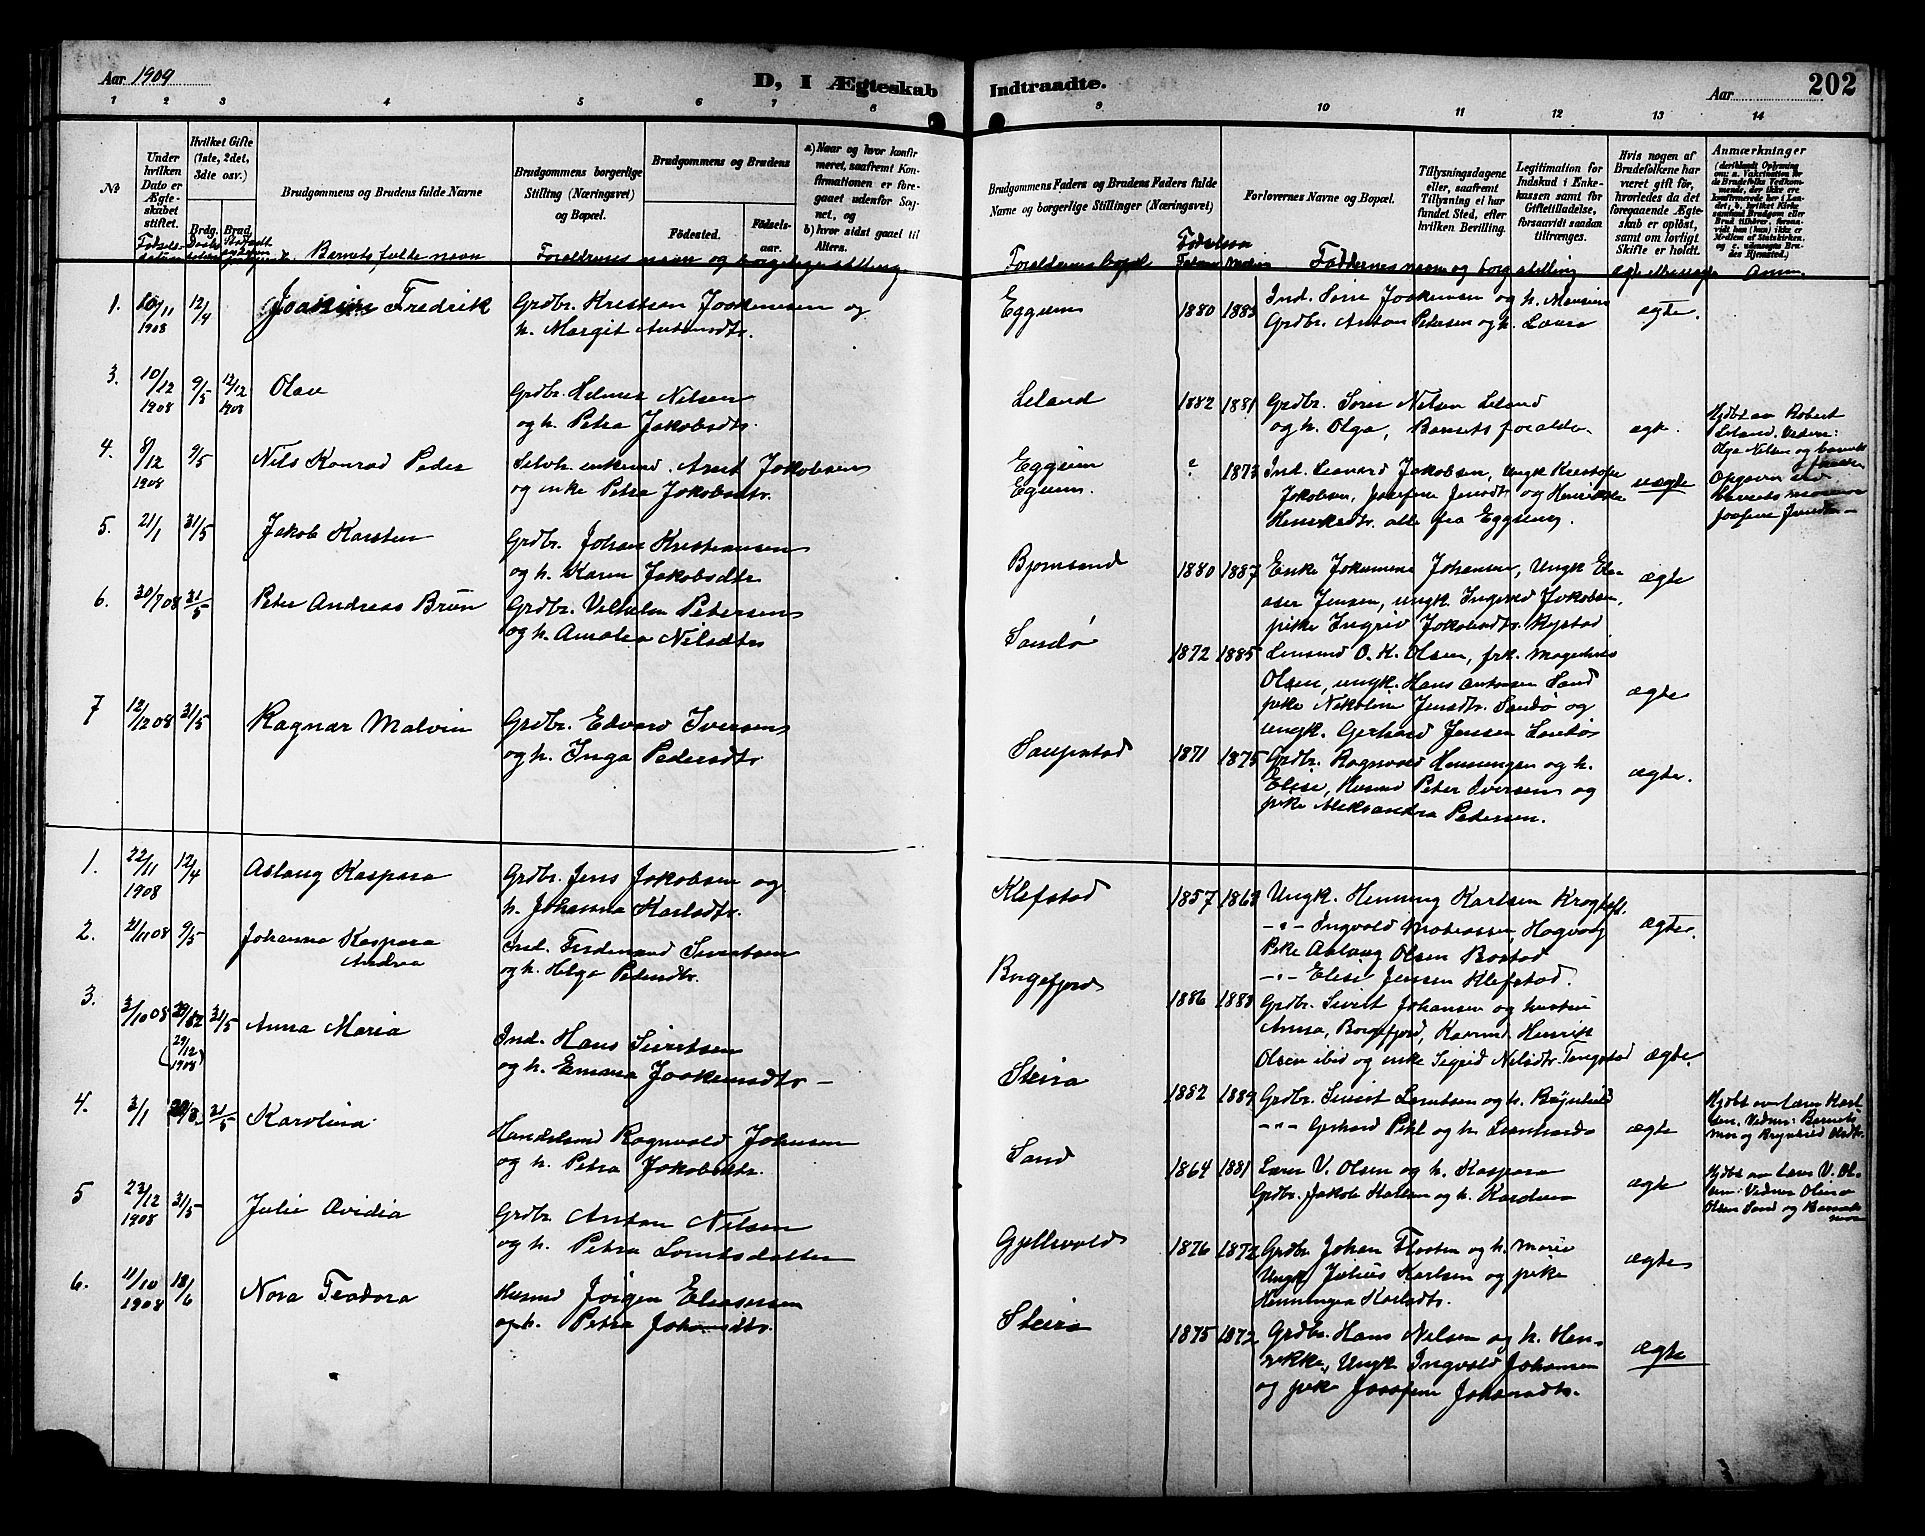 Aar 1909
D, I Ægteskab Indtraadte.
Aar
202
1 2 3 4 5 6 7 8 9 10 11 12 13 14
№
Under hvilken Dato er Ægteskabet stiftet.
Hvilket Gifte (1ste, 2det, 3die osv.)
Brdg. Brud.
Brudgommens og Brudens fulde Navne
Brudgommens borgerlige Stilling (Næringsvei) og Bopæl.
Brudgommens og Brudens
Fødested.
Fødselsaar.
a) Naar og hvor konfirmeret, saafremt Konfirmationen er foregaaet udenfor Sognet, og
b) hvor sidst gaaet til Alters.
Brudgommens Faders og Brudens Faders fulde Navne og borgerlige Stillinger (Næringsvei)
Forlovernes Navne og Bopæl.
Tillysningsdagene eller, saafremt Tillysning ei har fundet Sted, efter hvilken Bevilling.
Legitimation for Indskud i Enkekassen samt for Giftetilladelse, forsaavidt saadan tiltrænges.
Hvis nogen af Brudefolkene har været gift før, hvorledes da det foregaaende Ægteskab er opløst, samt om lovligt Skifte er holdt.
Anmærkninger
Barnets fulde navn
Forældrenes navn og borgerlige stilling
Forældrenes bopæl
Fødselsaar
Faddernes navn og borg. stilling
Anm.
1. 20/11 1908 12/4 Joakim Fredrik
Grdbr. Kristian Joakimsen og
h. Margit Antonsdtr.
Eggum 1880 1883
Ind. Sørie Joakimsen og h.
Grdbr. Anton Petersen og h. Laura
ægte.
3. 10/12 1908 9/5 12/12 1908 Olav
Grdbr. Helmer Nilsen
og h. Petra Jakobsdtr.
Leland 1882 1881
Grdbr. Søren Nilsen Leland
og h. Olga, Barnets forældre.
ægte.
Hjdbt av Robert
Leland. Vidner:
Olga Nilsen og barnets
4. 8/12 1908 9/5 Nils Konrad Peder
Selvh. enkemd. Arnt Jakobsen
og enke Petra Jakobsdtr.
Eggum
Eggum.
? 1873
Ind. Leonard Jakobsen, Ungk Kristofer
Jakobsen, Josefine Jensdtr og Henrikke
Henrikdtr. alle fra Eggum.
uægte
Opgaven ved
barnets mormor
Josefine Jensdtr.
5. 21/1 31/5 Jakob Karsten
Grdbr. Johan Kristiansen
og h. Karen Jakobsdtr
Bjørnsand 1880 1887
Enke Jokumine Johansen, Ungk Ele-
aser Jensen, ungk Ingvald Jakobsen,
pike Ingrid Jakobsdtr. Rystad
ægte
6. 30/7 08 31/5 Peter Andreas Brun
Grdbr. Vilhelm Petersen
og h. Amalia Nilsdtr
Sandø 1872 1885
Lensmd O. K. Olsen, frk. Magdalis
Olsen, ungk. Hans Antonsen Sand
pike Nikoline Jensdtr. Sandø og
ungk. Gerhard Jensen Sandø
ægte
7 12/12 08 31/5 Ragnar Malvin
Grdbr. Edvard Iversen
og h. Inga Pedersdtr
Saupstad 1871 1875
Grdbr. Ragnvald Henningsen og h.
Elise, Husmd Peter Iversen og
pike Aleksandra Pedersen.
ægte.
1. 22/11 1908 12/4 Aslaug Kaspara
Grdbr. Jens Jakobsen og
h. Johanna Karlsdtr.
Klefstad 1857 1863
Ungk. Henning Karlsen Krogtoft.
-"- Ingvald Mathiassen, Hagvaag
Pike Aslaug Olsen Bostad
-"- Elise Jensen Klefstad.
ægte.
2. 21/11 08 9/5 Johanna Kaspara
Andrea
Ind. Ferdinand Sivertsen
og h. Helga Pedersdtr.
Borgefjord 1886 1883
Grdbr. Sivert Johansen og hustru
Anna, Borgefjord, Kaarmd Henrik
Olsen ibid og enke Sigrid Nilsdtr. Tangstad
ægte.
3. 2/10 08 29/12 31/5 Anna Maria
(29/12 1908)
Ind. Hans Sivertsen
og h. Emma Joakimsdtr
Steira 1882 1889
Grdbr. Sivert Lorntsen og h. Brynhild
-"- Gerhard Pihl og h. Leonharda
ægte
Hjdbt av Lærer Karl-
sen. Vidner: Barnets
mor og Brynhild Olsdtr.
4. 3/1 31/5 Karolina
Handelsmd Ragnvald Johnsen
og h. Petra Jakobsdtr.
Sand 1864 1881
Lærer V. Olsen og h. Kaspara
Grdbr. Jakob Karlsen og h. Kardine
ægte
Hjdbt av Lærer V. Ol-
sen: Vidner Olina
Olsen Sand og Barnets
mor
5 23/12 1908 31/5 Julie Ovidia
Grdbr Anton Nilsen
og h. Petra Lorntsdatter
Gjellvold 1876 1872
Grdbr Johan Floten og h. Marie
Ungk Julius Karlsen og pike
Henninga Karlsdtr.
ægte
6. 11/10 1908 18/6 Nora Teodora
Husmd Jörgen Eliasersen
og h. Petra Johansdtr.
Steira 1875 1872
Grdbr. Hans Nilsen og h. Hen-
rikke, Ungk Ingvald Johansen
og pike Josefine Johansdtr.
ægte